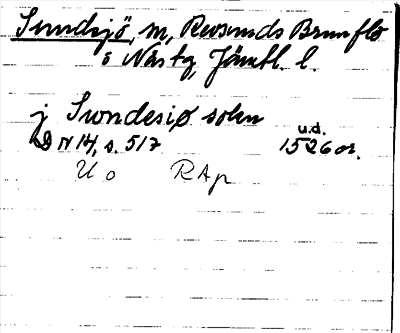 Sundsjö, m, Revsunds Brunflo
o Näs tg, Jämtl. l.
j Swndesiø sokn
u.d.
D N 14, s. 517 1526 or.
U o RAp